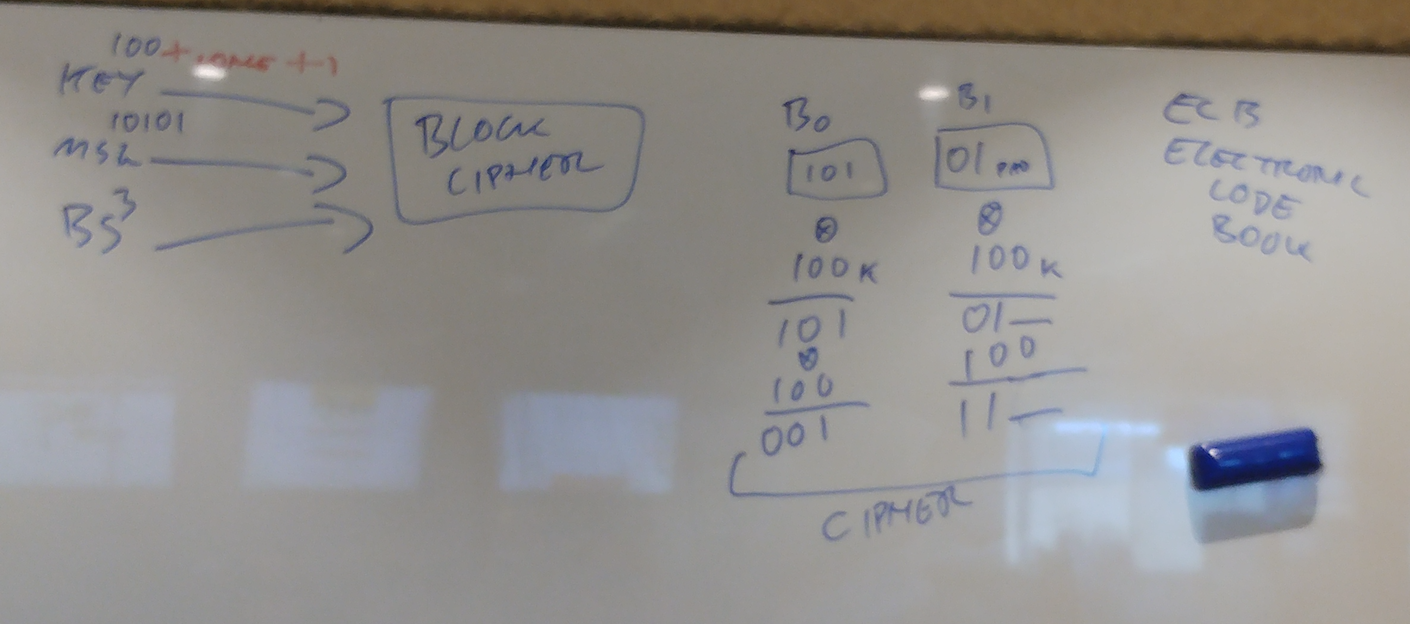 100
KEY
10101
MSG
BS3
BLOCK
CIPHER
B0
101
⊗
100K
101
⊗
100
001
B1
01 PAD
⊗
100K
01—
100
11—
CIPHER
ECB
ELECTRONIC
CODE
BOOK